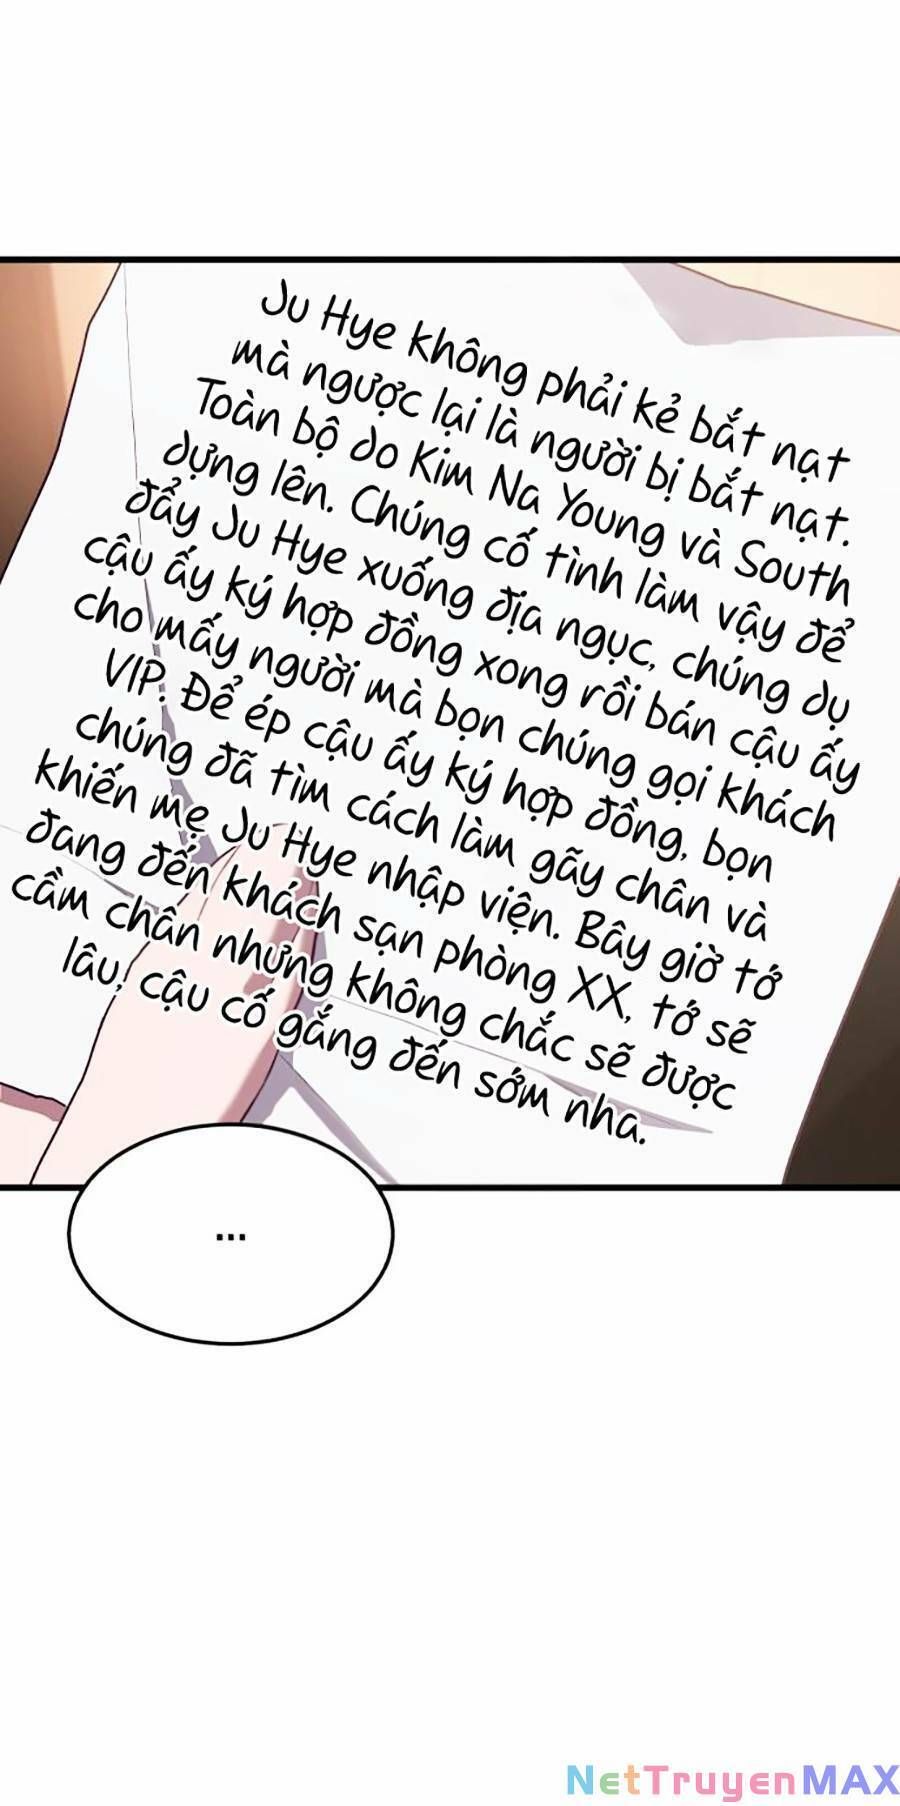 Ju Hye không phải kẻ bắt nạt
mà ngược lại là người bị bắt nạt.
Toàn bộ do Kim Na Young và South
dựng lên. Chúng cố tình làm vậy để
đẩy Ju Hye xuống địa ngục, chúng dụ
cậu ấy ký hợp đồng xong rồi bán cậu ấy
cho mấy người mà bọn chúng gọi khách
VIP. Để ép cậu ấy ký hợp đồng, bọn
chúng đã tìm cách làm gãy chân và
khiến mẹ Ju Hye nhập viện. Bây giờ tớ
đang đến khách sạn phòng XX, tớ sẽ
cầm chân nhưng không chắc sẽ được
lâu, cậu cố gắng đến sớm nha.
...
NetTruyenMAX